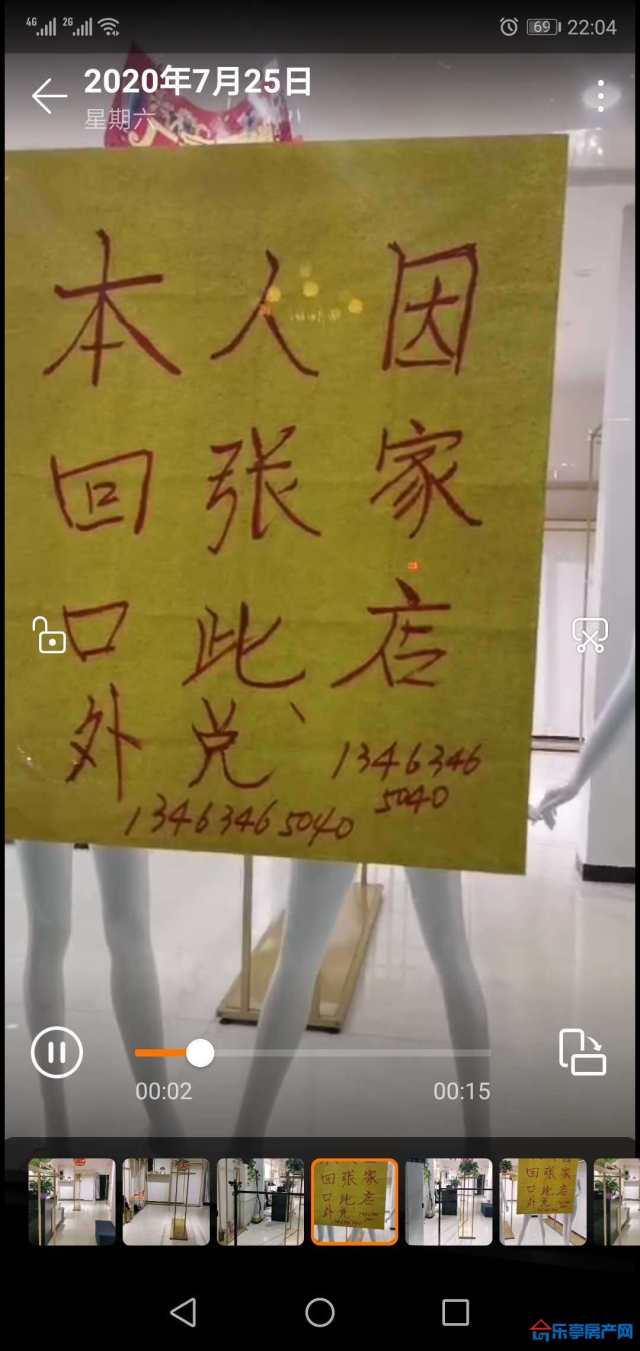 4G 2G 69 22:04
2020年7月25日
星期六
本人因
回张家
口此店
外兑、
1346346
5040
13463465040
00:02 00:15
回张家
口此店
外兑
回张家
口此店
外兑
乐享房产网